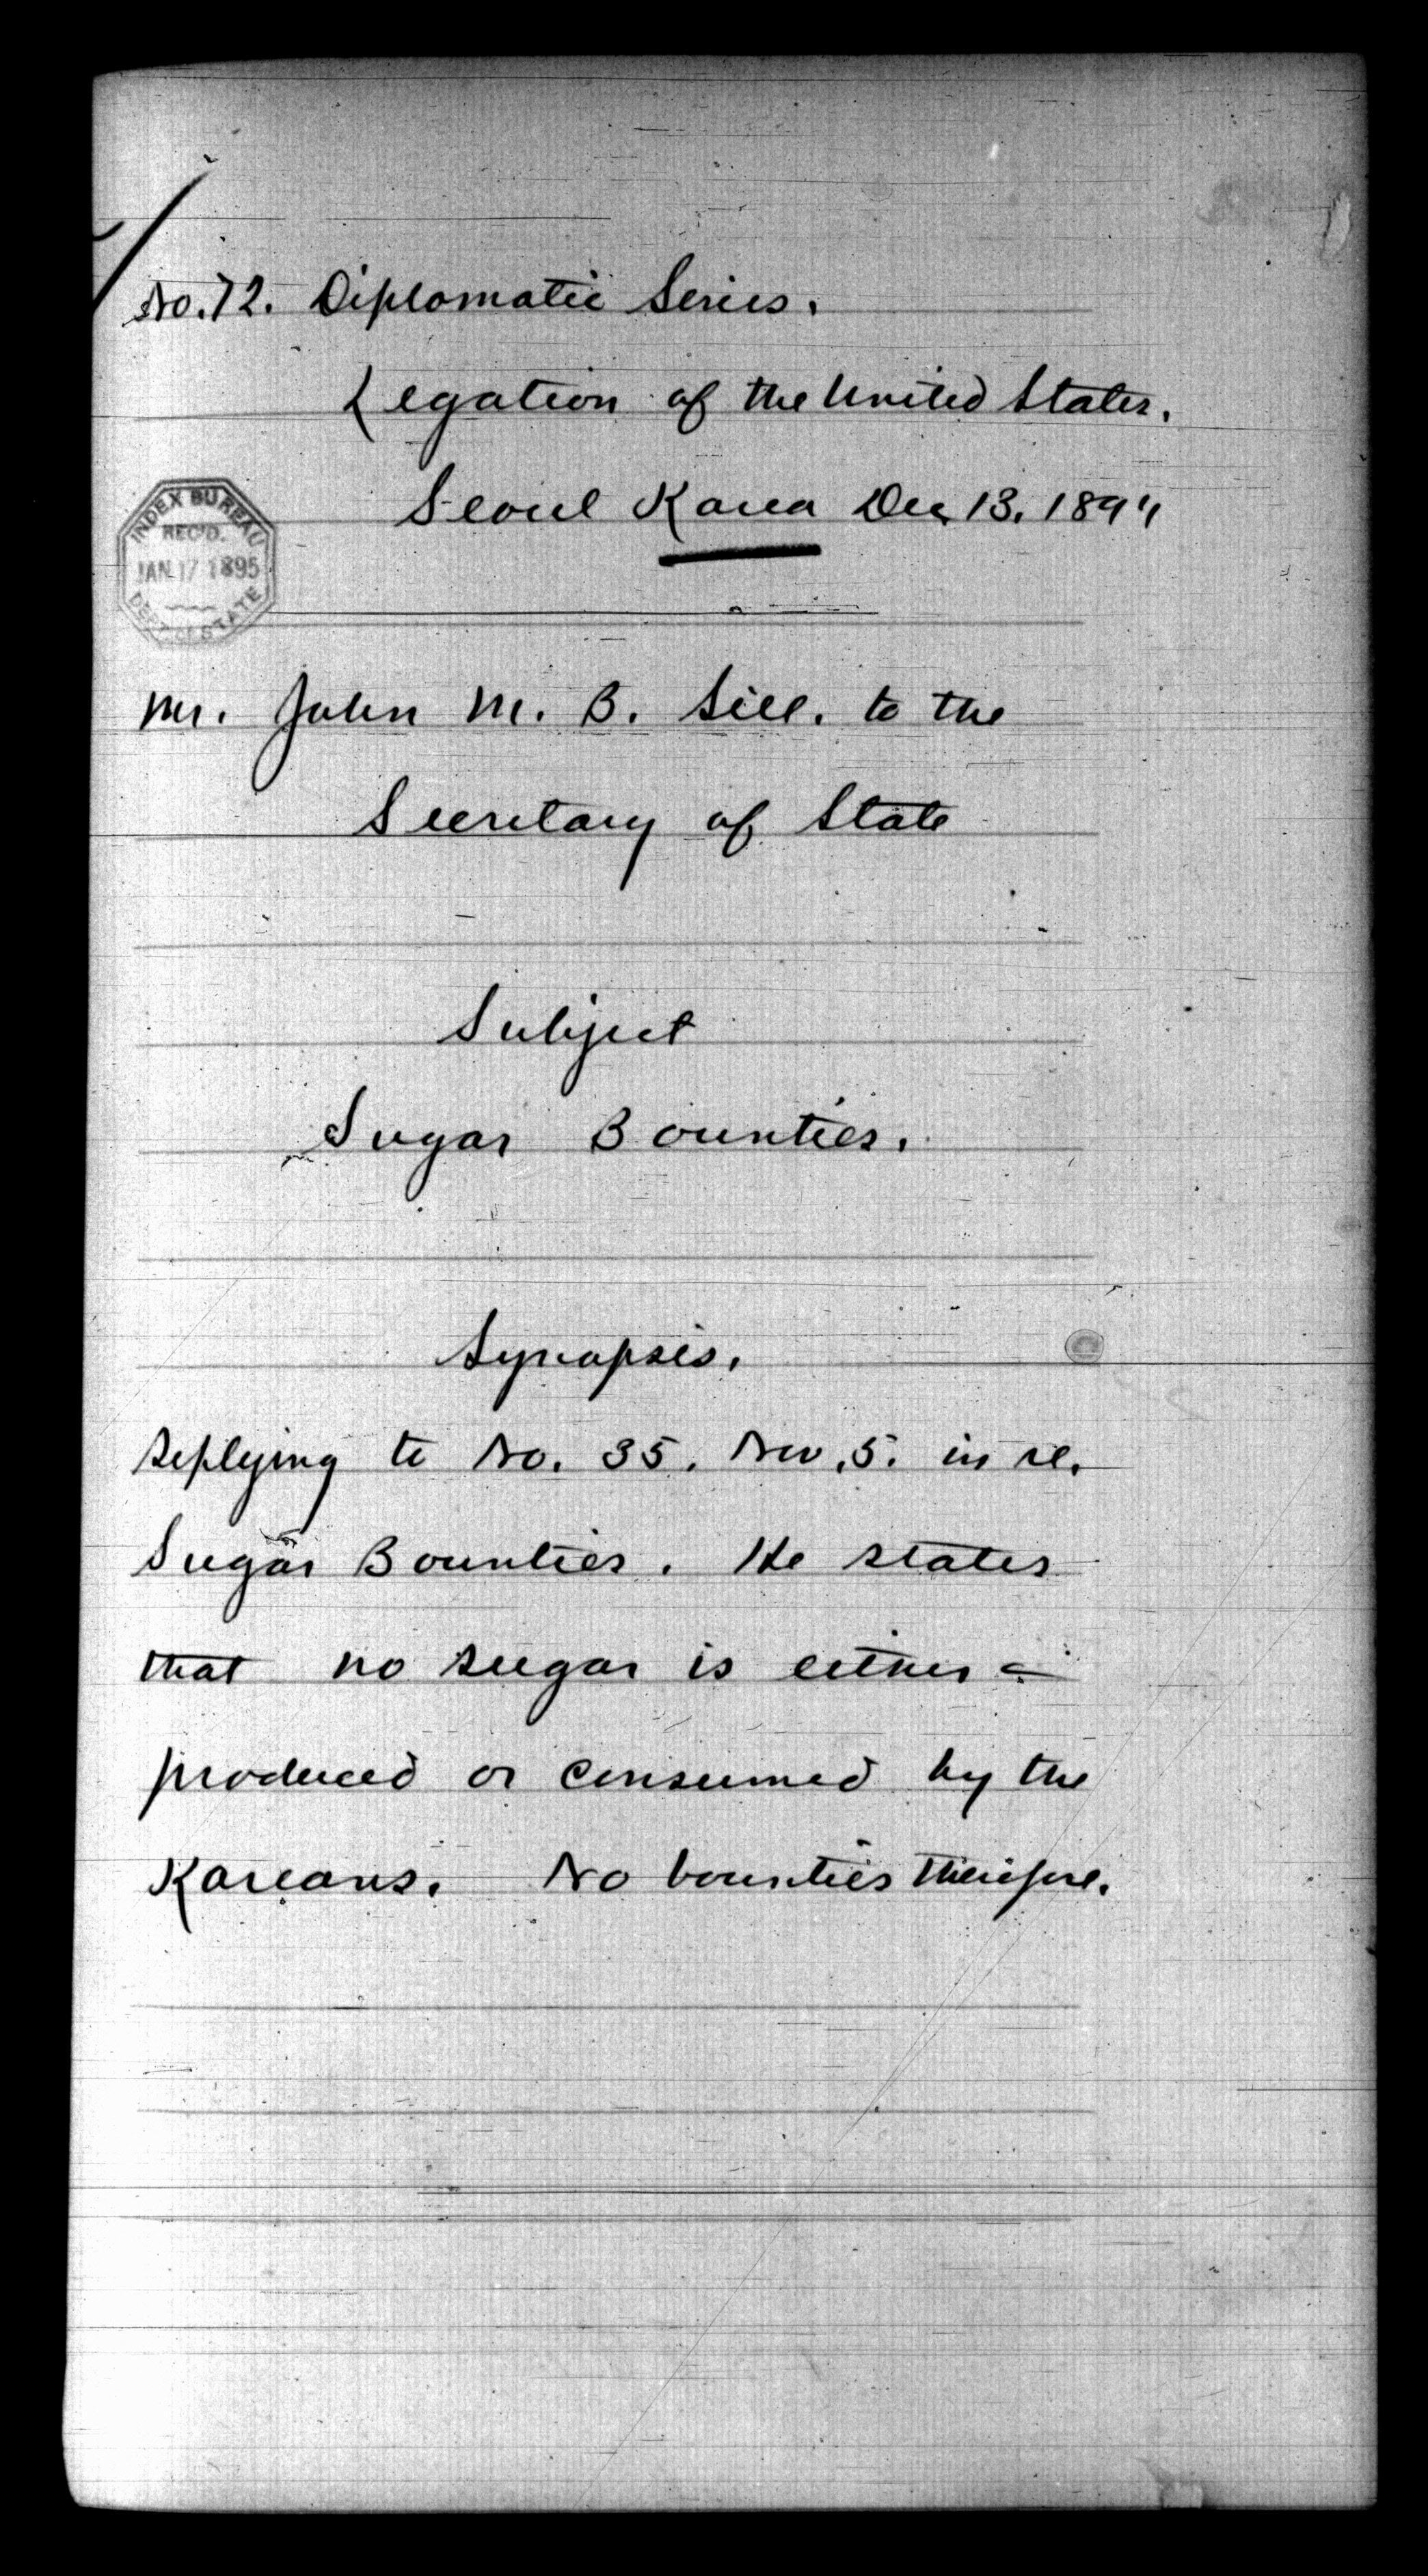 No. 72. Diplomatic Series.
Legation of the United States.
Seoul Korea Dec 13. 1894
INDEX BUREAU
REC'D.
JAN 17 1895
DEPT OF STATE
Mr. John M. B. Sill. to the
Secretary of State
Subject
Sugar Bounties.
Synopsis.
Replying to No. 35. Nov. 5. in re.
Sugar Bounties. He states
that no sugar is either -
produced or consumed by the
Koreans. No bounties therefore.